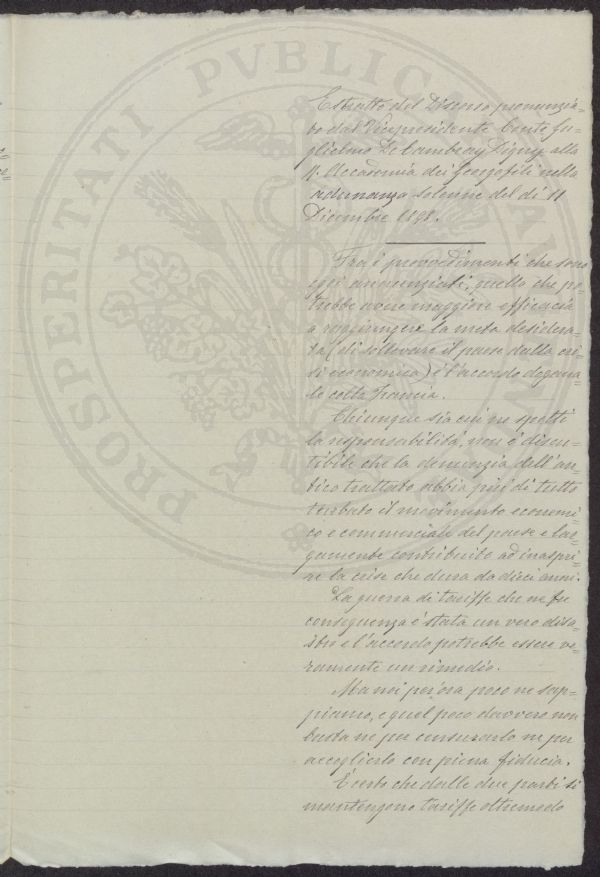 Estratto del Discorso pronunzia=
to dal Vicepresidente Conte Gu=
glielmo De Cambray Digny alla
R. Accademia dei Georgofili nella
adunanza solenne del dì 11
Dicembre 1898.
Fra i provvedimenti che sono
oggi annunziati, quello che po=
trebbe avere maggiore efficacia
a raggiungere la meta desidera=
ta (di sollevare il paese dalla cri=
si economica) è l'accordo dogana=
le colla Francia.
Chiunque sia cui ne spetti
la responsabilità, non è discu=
tibile che la denunzia dell'an=
tico trattato abbia più di tutto
turbato il movimento economi=
co e commerciale del paese e lar=
gamente contribuito ad inaspri=
re la crise che dura da dieci anni.
La guerra di tariffe che ne fu
conseguenza è stata un vero disa=
stro e l'accordo potrebbe essere ve=
ramente un rimedio.
Ma noi per ora poco ne sap=
piamo, e quel poco davvero non
basta ne per censurarlo ne per
accoglierlo con piena fiducia.
È certo che dalle due parti si
mantengono tariffe oltremodo
PROSPERITATI PVBLICAE